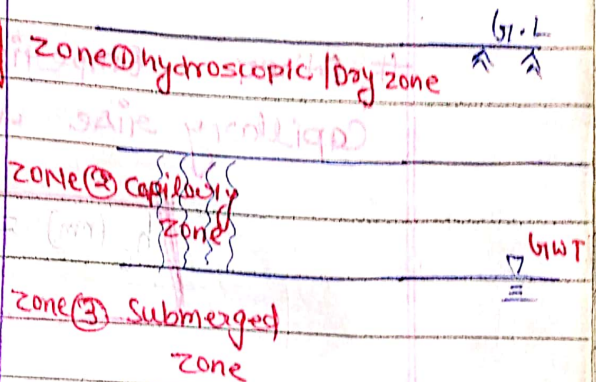 G.L
Zone① hydroscopic /Dry zone
ZONE② Capilary
zone
GWT
zone③ Submerged
zone